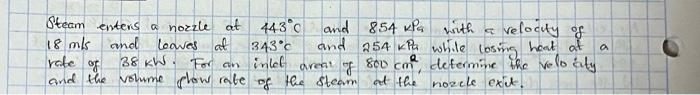 Steam enters a nozzle at 443°C and 854 kPa with a velocity of
18 m/s and leaves at 343°C and 254 kPa while losing heat at a
rate of 38 kW. For an inlet area of 800 cm², determine the velocity
and the volume flow rate of the steam at the nozzle exit.